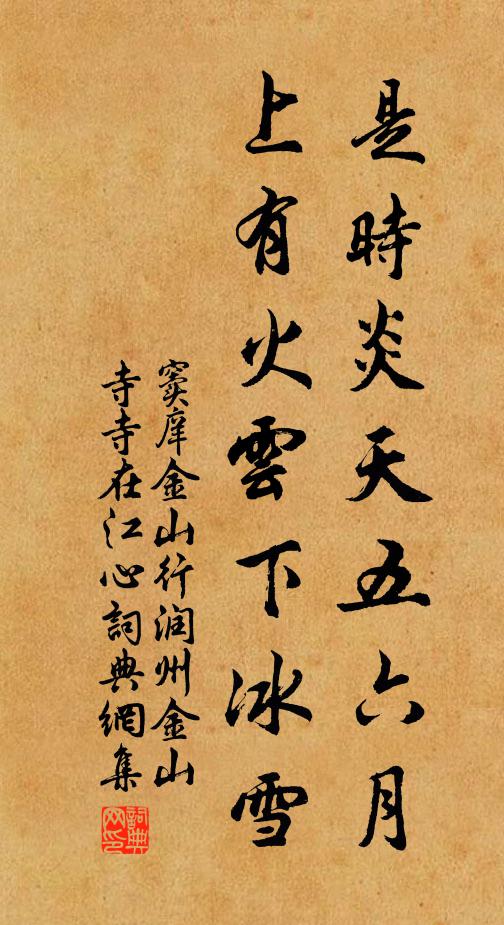 是時炎天五六月
上有火雲下冰雪
竇庠金山行润州金山
寺寺在江心詞典網集
詞典网印